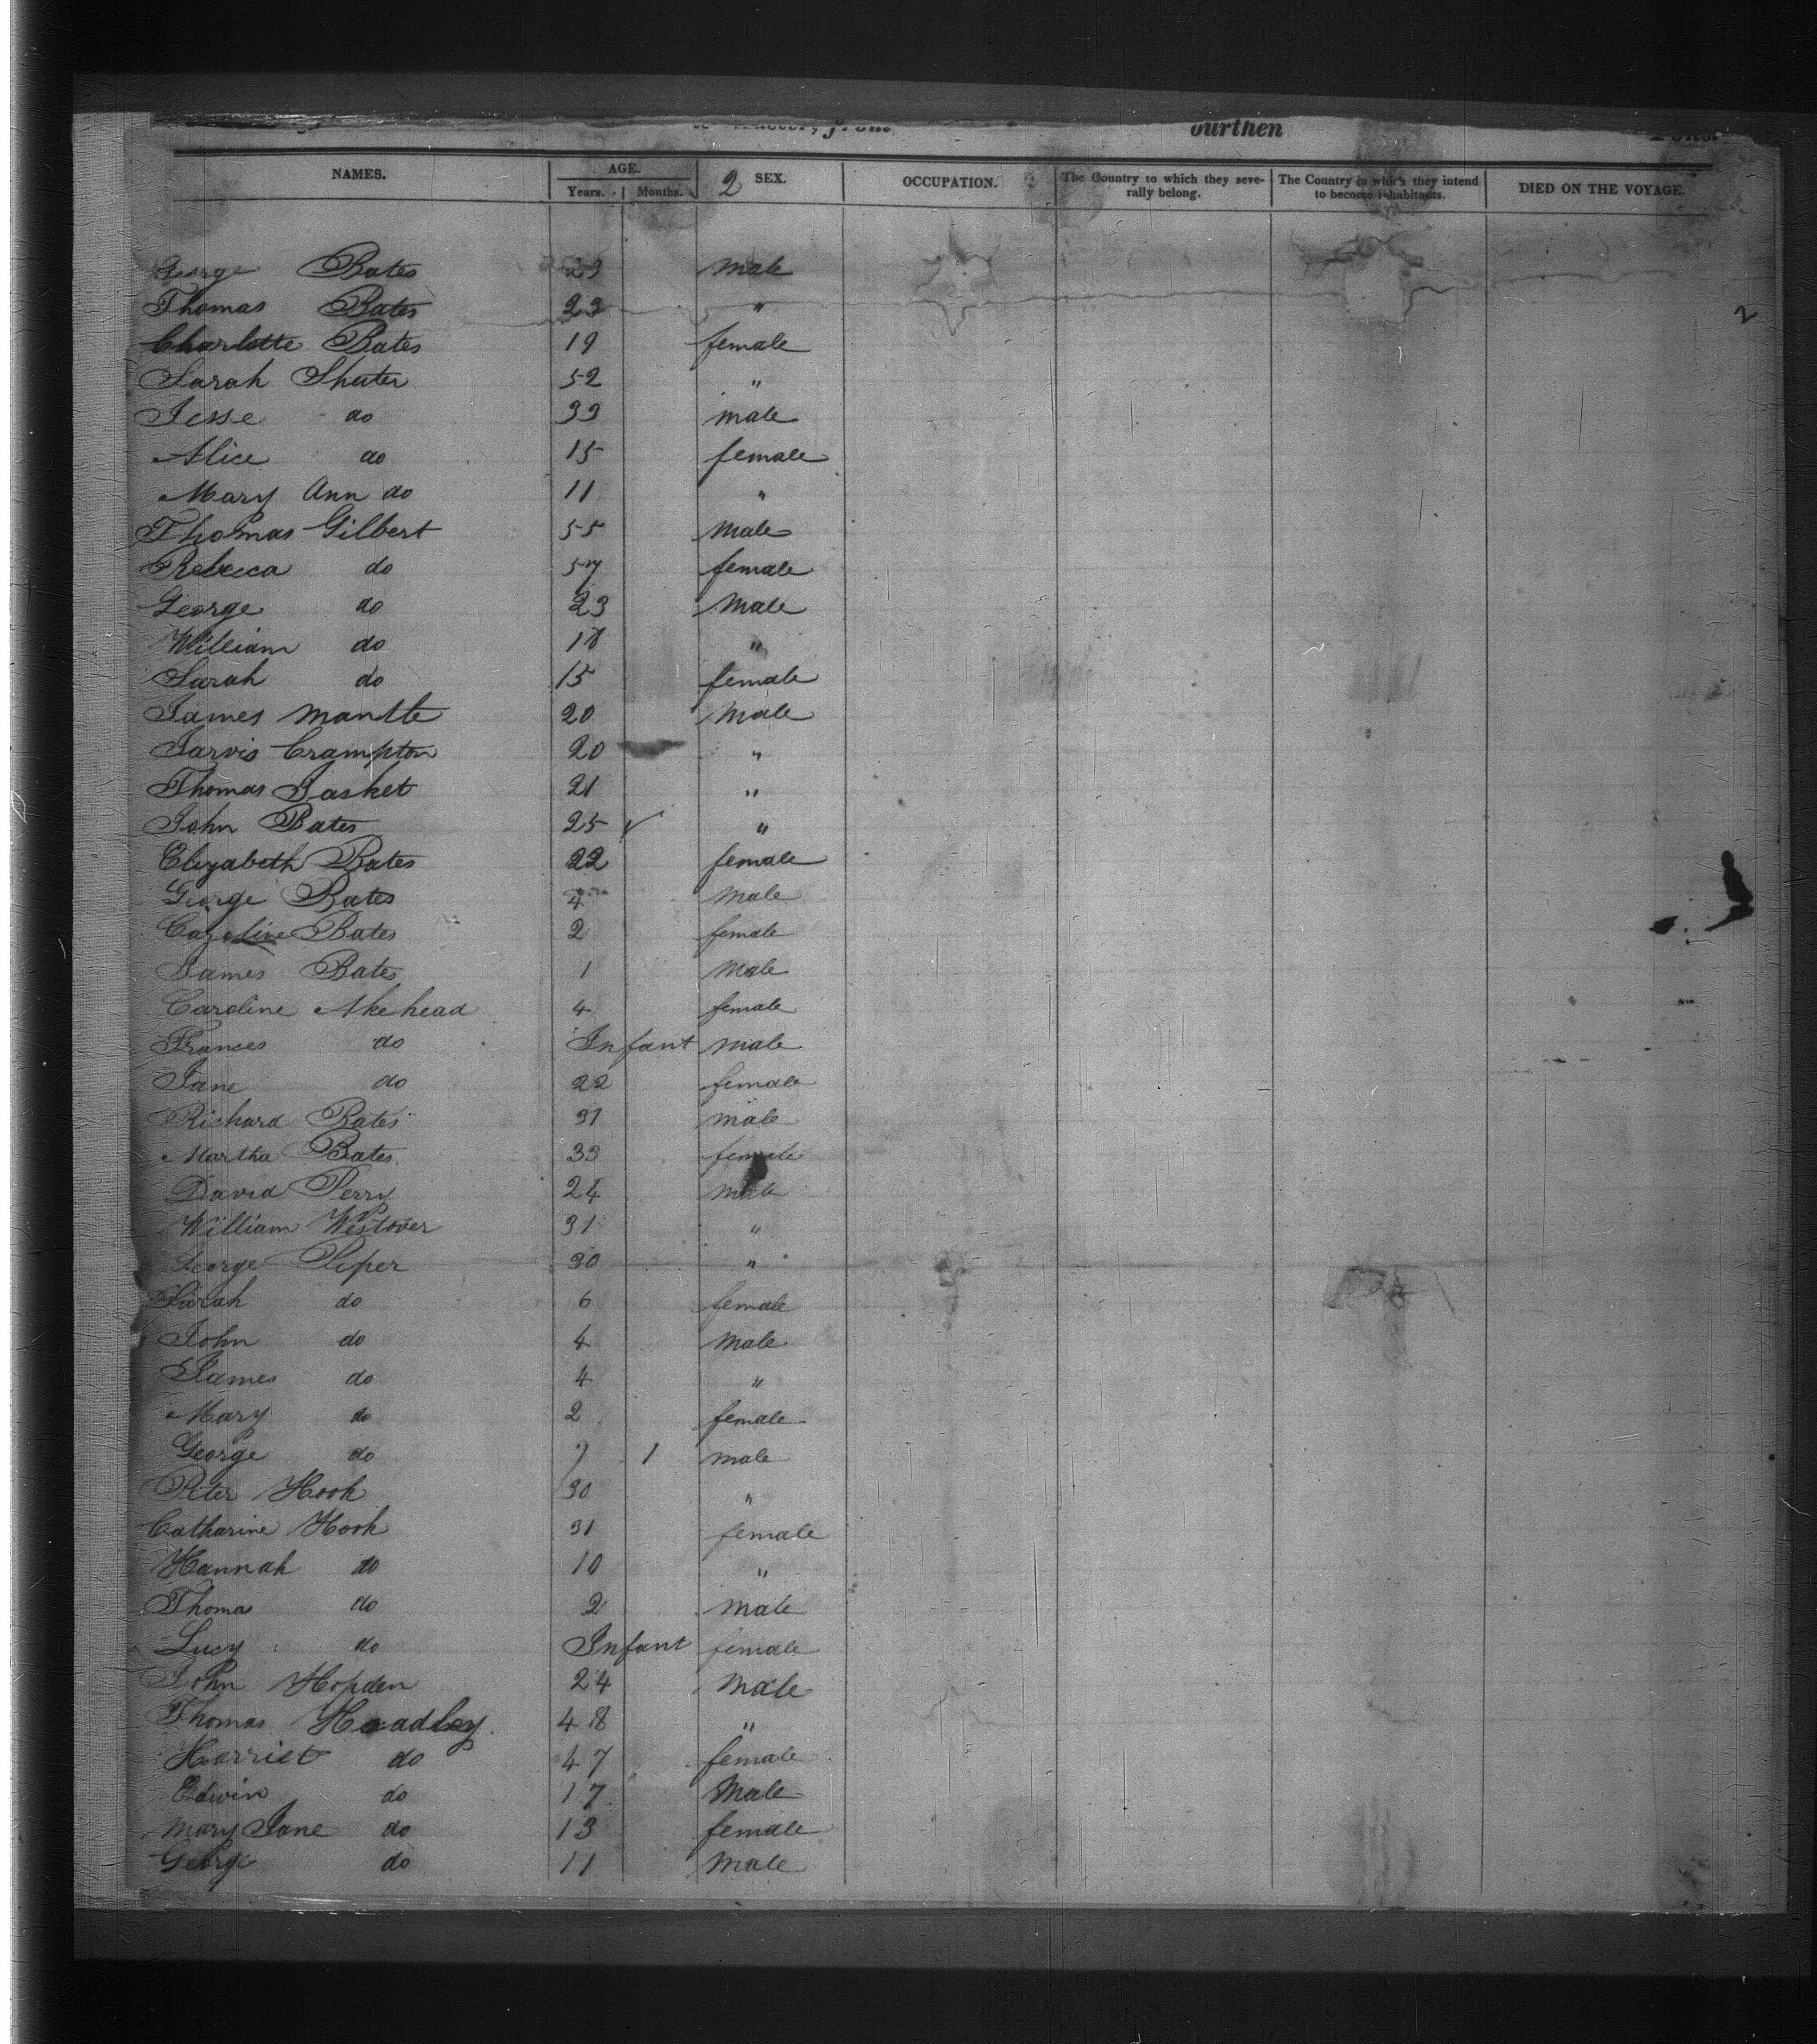 ourthen
NAMES. AGE. Years. Months. 2 SEX. OCCUPATION. The Country to which they severally belong. The Country in which they intend to become inhabitants. DIED ON THE VOYAGE.
George Bates 23 male
Thomas Bates 23 "
Charlotte Bates 19 female
Sarah Shuter 52 "
Jesse do 33 male
Alice do 15 female
Mary Ann do 11 "
Thomas Gilbert 55 Male
Rebecca do 57 female
George do 23 Male
William do 18 "
Sarah do 15 female
James Mantle 20 Male
Jarvis Crampton 20 "
Thomas Jasket 21 "
John Bates 25 ✓ "
Elizabeth Bates 22 female
George Bates 4 male
Caroline Bates 2 female
James Bates 1 Male
Caroline Akehead 4 female
Frances do Infant male
Jane do 22 female
Richard Bates 31 male
Martha Bates 33 female
David Perry 24 male
William Westover 31 "
George Piper 30 "
Sarah do 6 female
John do 4 Male
James do 4 "
Mary do 2 female
George do 1 male
Peter Hook 30 "
Catharine Hook 31 female
Hannah do 10 "
Thomas do 2 Male
Lucy do Infant female
John Hopden 24 Male
Thomas Hoadley 48 "
Harriet do 47 female
Edwin do 17 Male
Mary Jane do 13 female
George do 11 Male